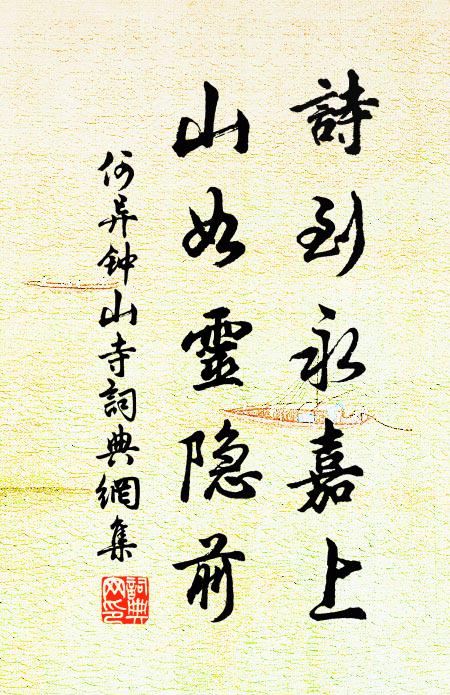 詩到永嘉上
山如靈隐前
何异钟山寺詞典網集
詞典
网印